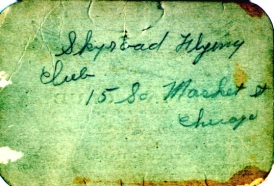 Skyroad Flying
Club
15 So Market St
Chicago